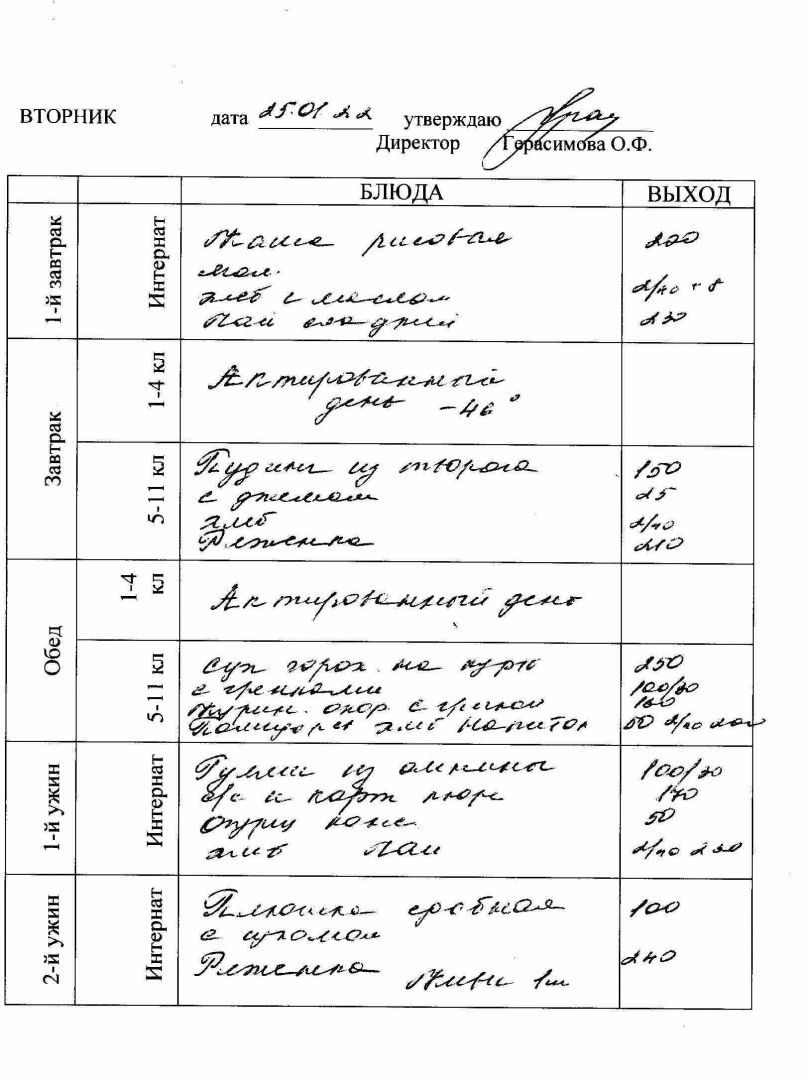 ВТОРНИК дата 25.01 22 утверждаю
Директор Герасимова О.Ф.
БЛЮДА ВЫХОД
1-й завтрак Интернат
Каша рисовая 200
мол.
хлеб с маслом 2/40 + 8
Чай сладкий 230
Завтрак
1-4 кл
Актированный
день -46°
5-11 кл
Пудинг из творога 150
с джемом 25
хлеб 2/40
Ряженка 210
Обед
1-4 кл
Актированный день
5-11 кл
Суп горох. на курe 250
с гренками 100/30
Курин. окор. с гречкой
Помидоры хлеб Напиток 50 2/40 200
1-й ужин Интернат
Гуляш из 100/30
к/с и карт пюре 170
Огурец конс. 50
хлеб Чай 2/40 230
2-й ужин Интернат
Плюшка сдобная 100
с сахаром
Ряженка 240
Киви 1шт